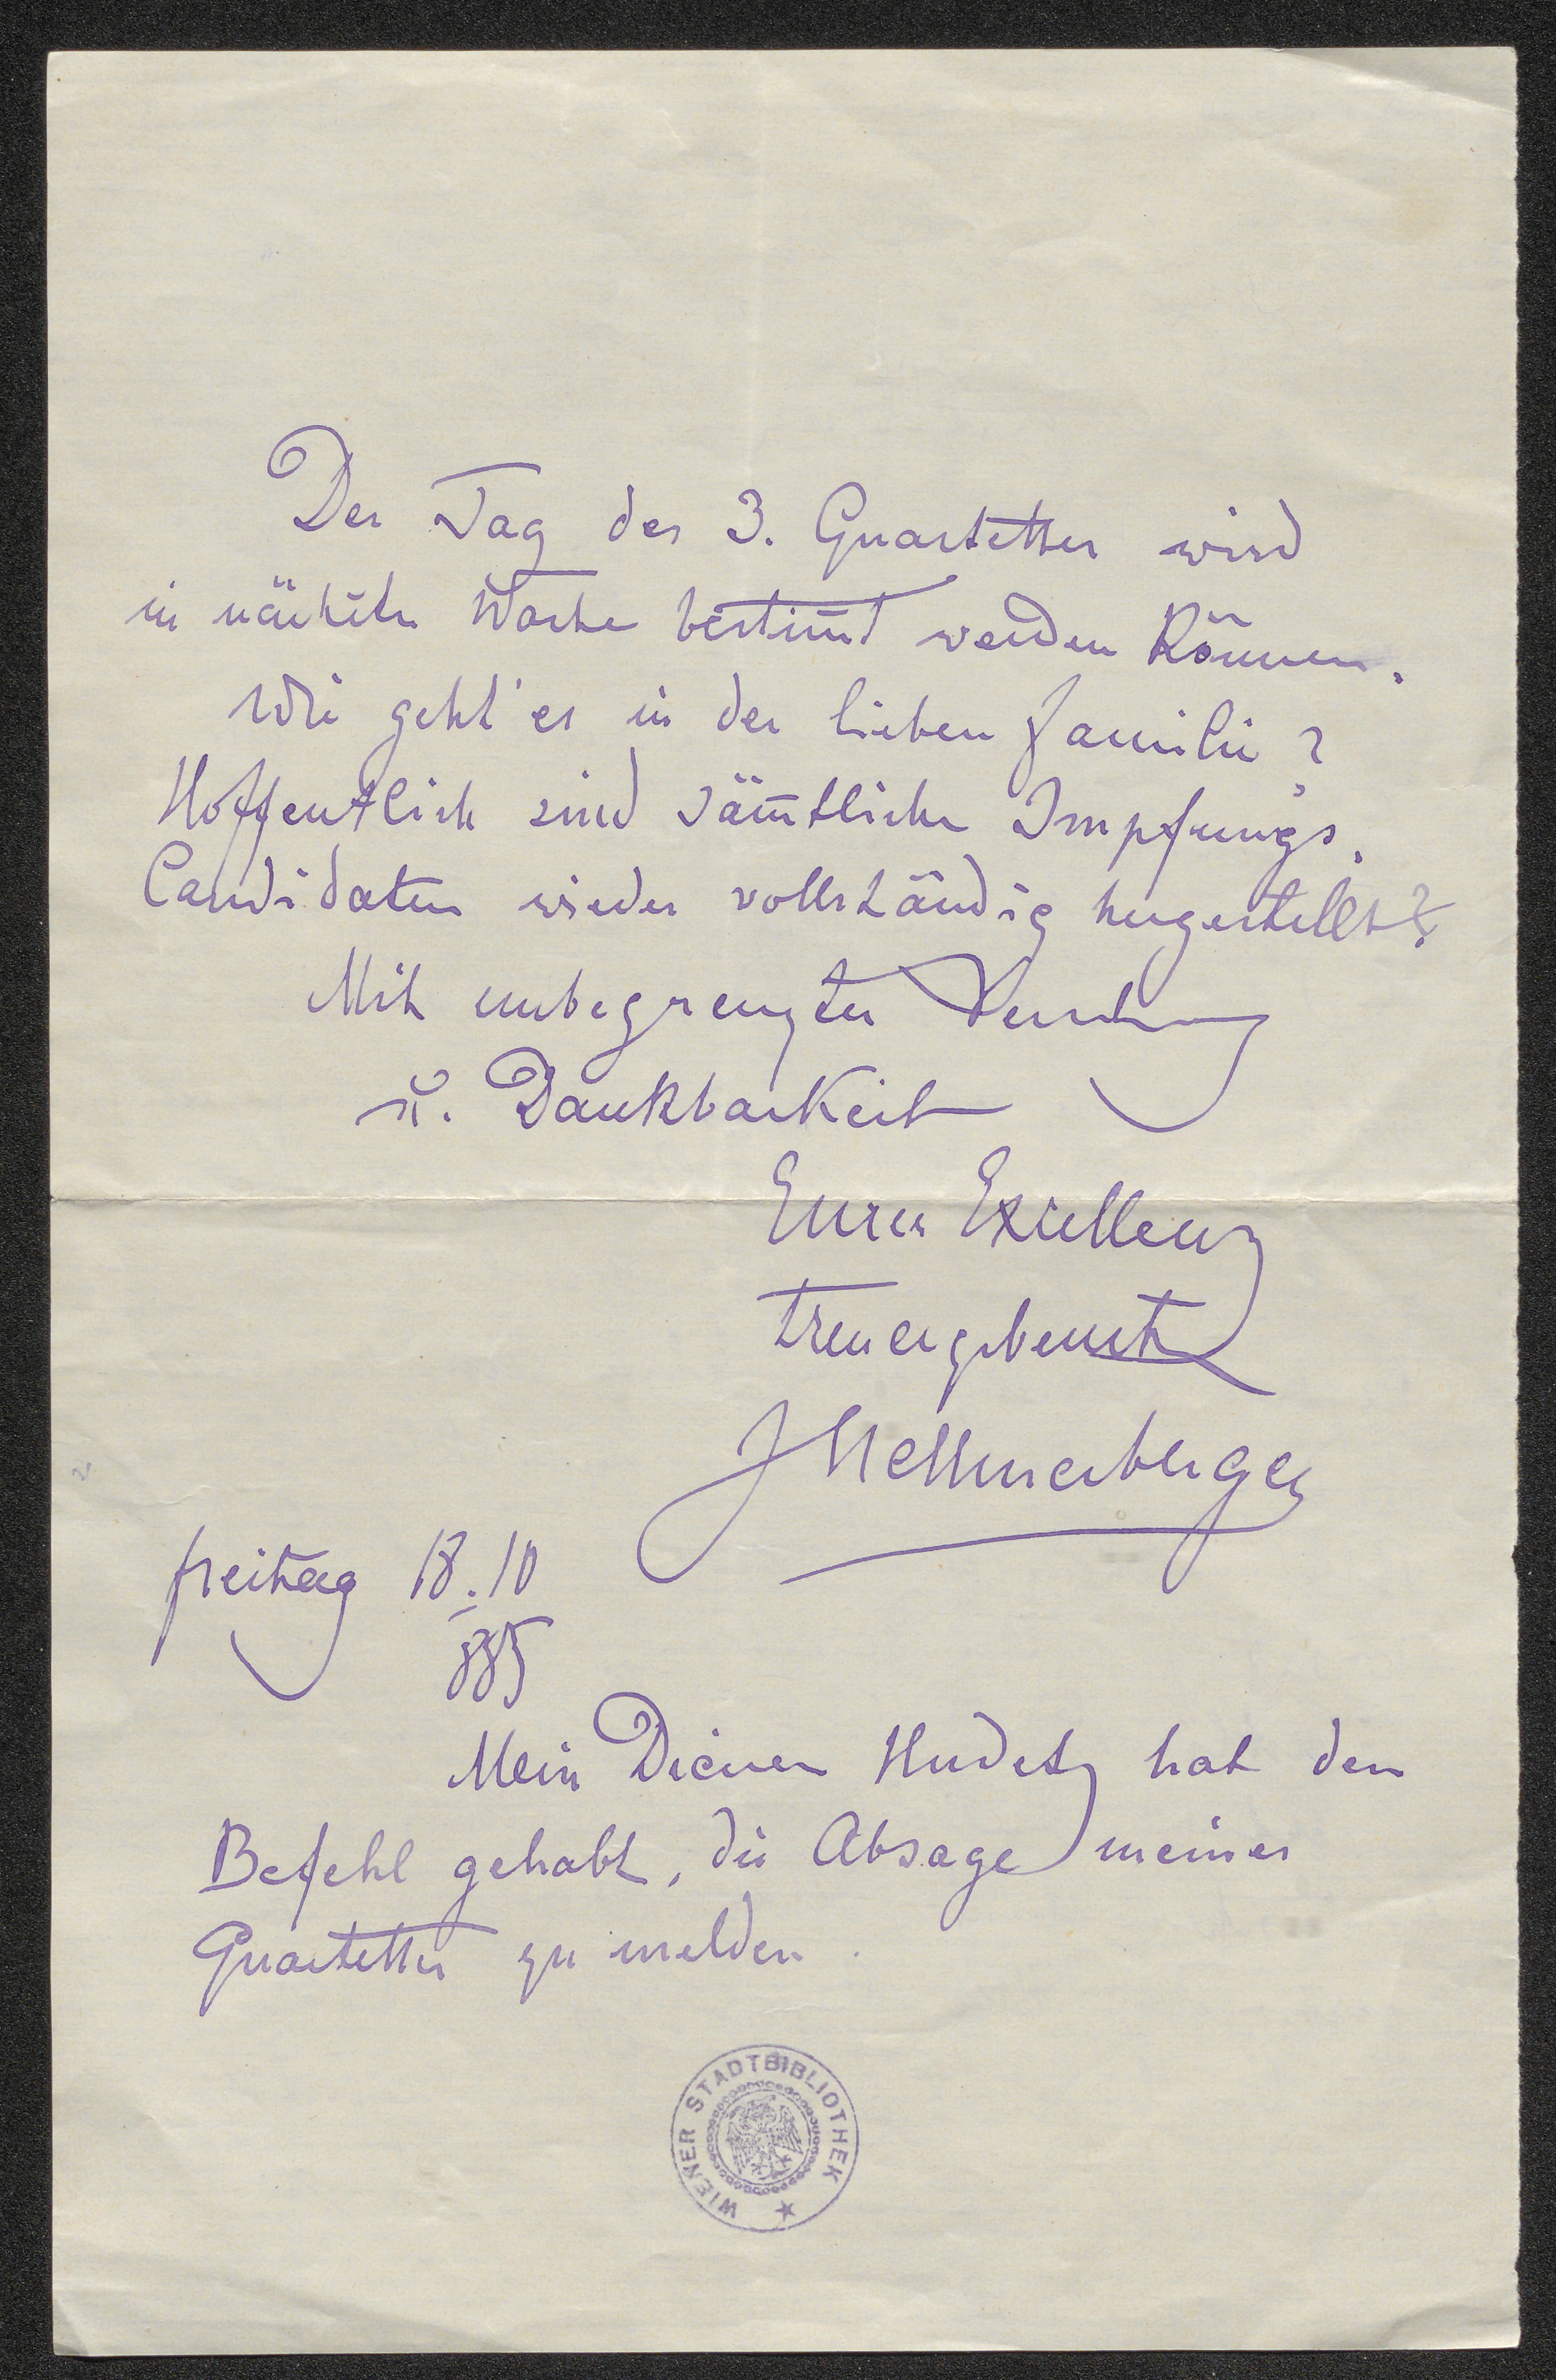 Der Tag des 3. Quartettes wird
in nächster Woche bestim̅t werden können.
Wie geht's es in der lieben Familie?
Hoffentlich sind säm̅tliche Impfungs-
Candidaten wieder vollständig hergestellt?
Mit unbegrenzter Verehrung
u. Dankbarkeit
Eurer Excellenz
treuergebenster
JHellmesberger
Freitag 18.10
885
Mein Diener Hudetz hat den
Befehl gehabt, die Absage meines
Quartettes zu melden.
WIENER STADTBIBLIOTHEK